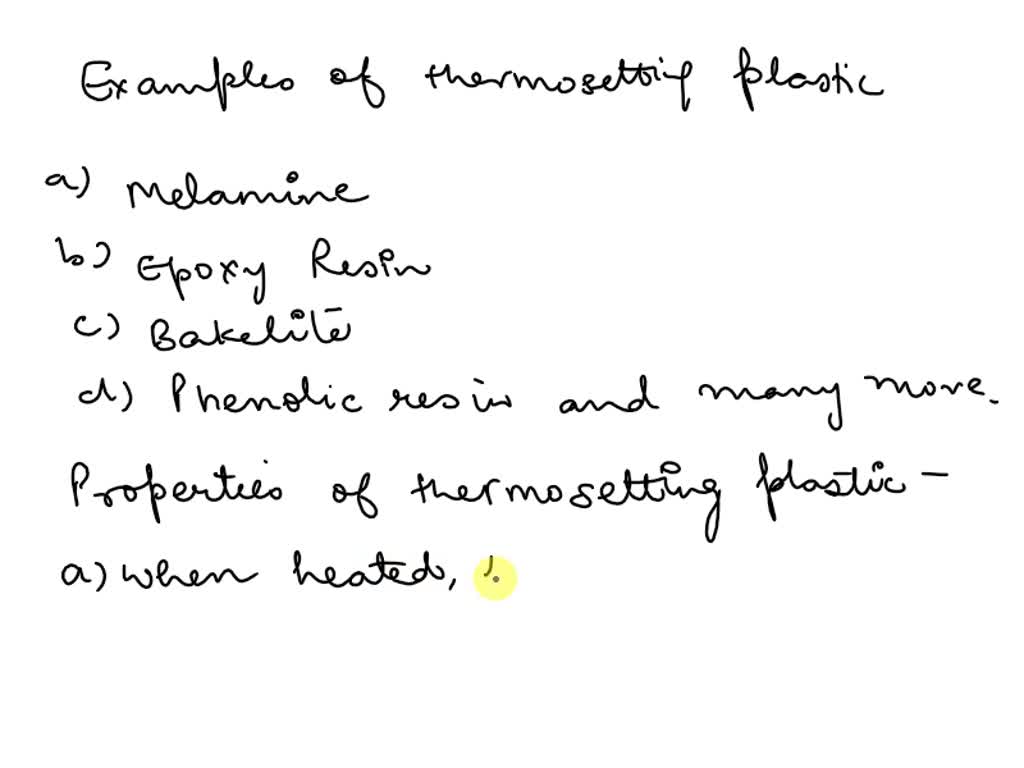 Examples of thermosetting plastic
a) Melamine
b) Epoxy Resin
c) Bakelite
d) Phenolic resin and many more.
Properties of thermosetting plastic -
a) when heated,